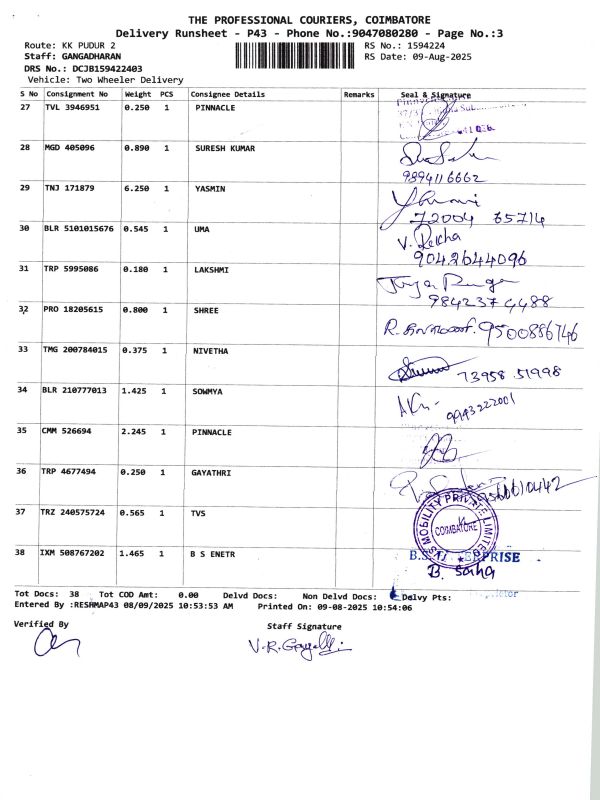 THE PROFESSIONAL COURIERS, COIMBATORE
Delivery Runsheet - P43 - Phone No.:9047080280 - Page No.:3
Route: KK PUDUR 2 RS No.: 1594224
Staff: GANGADHARAN RS Date: 09-Aug-2025
DRS No.: DCJB159422403
Vehicle: Two Wheeler Delivery
S No Consignment No Weight PCS Consignee Details Remarks Seal & Signature
27 TVL 3946951 0.250 1 PINNACLE
28 MGD 405096 0.890 1 SURESH KUMAR
9894116662
29 TNJ 171879 6.250 1 YASMIN
72004 65714
30 BLR 5101015676 0.545 1 UMA V. Rekha
9042644096
31 TRP 5995086 0.180 1 LAKSHMI
9842374488
32 PRO 18205615 0.800 1 SHREE 9500886746
33 TMG 200784015 0.375 1 NIVETHA 73958 51998
34 BLR 210777013 1.425 1 SOWMYA 9993222001
35 CMM 526694 2.245 1 PINNACLE
36 TRP 4677494 0.250 1 GAYATHRI
37 TRZ 240575724 0.565 1 TVS MOBILITY PRIVATE LIMITED COIMBATORE
38 IXM 508767202 1.465 1 B S ENETR
B. Saha
Tot Docs: 38 Tot COD Amt: 0.00 Delvd Docs: Non Delvd Docs: Delvy Pts:
Entered By :RESHMAP43 08/09/2025 10:53:53 AM Printed On: 09-08-2025 10:54:06
Verified By Staff Signature